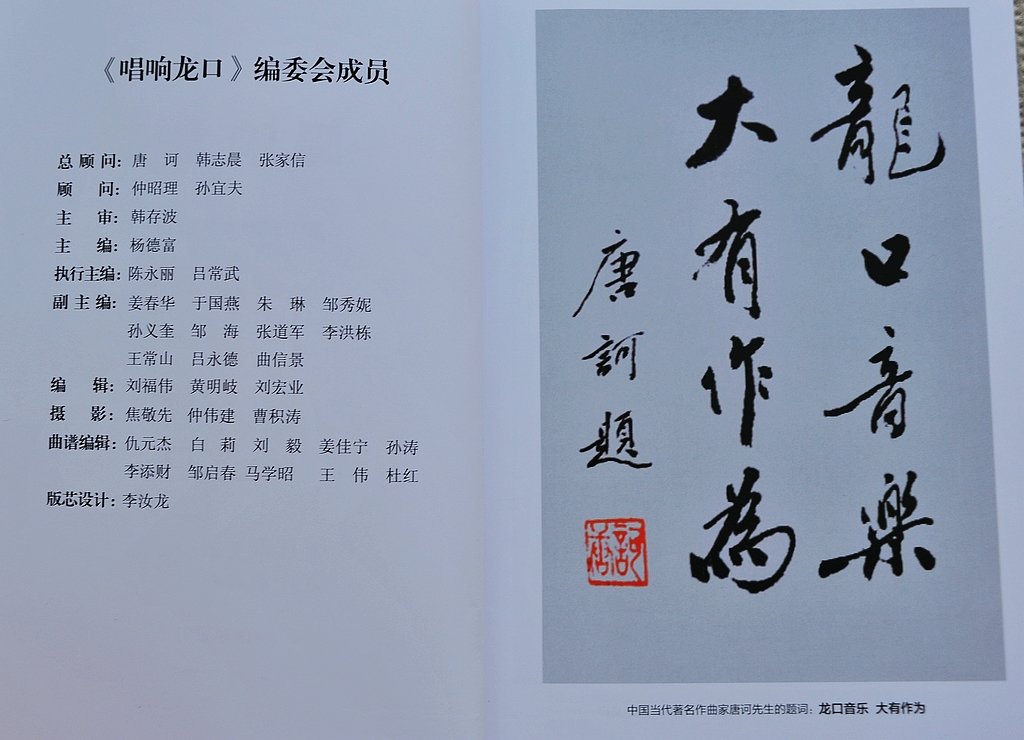 《唱响龙口》编委会成员
总顾问：唐 诃 韩志晨 张家信
顾 问：仲昭理 孙宜夫
主 审：韩存波
主 编：杨德富
执行主编：陈永丽 吕常武
副主编：姜春华 于国燕 朱 琳 邹秀妮
孙义奎 邹 海 张道军 李洪栋
王常山 吕永德 曲信景
编 辑：刘福伟 黄明岐 刘宏业
摄 影：焦敬先 仲伟建 曹积涛
曲谱编辑：仇元杰 白 莉 刘 毅 姜佳宁 孙涛
李添财 邹启春 马学昭 王 伟 杜红
版芯设计：李汝龙
龍口音樂
大有作為
唐訶題
唐訶
中国当代著名作曲家唐诃先生的题词：龙口音乐 大有作为